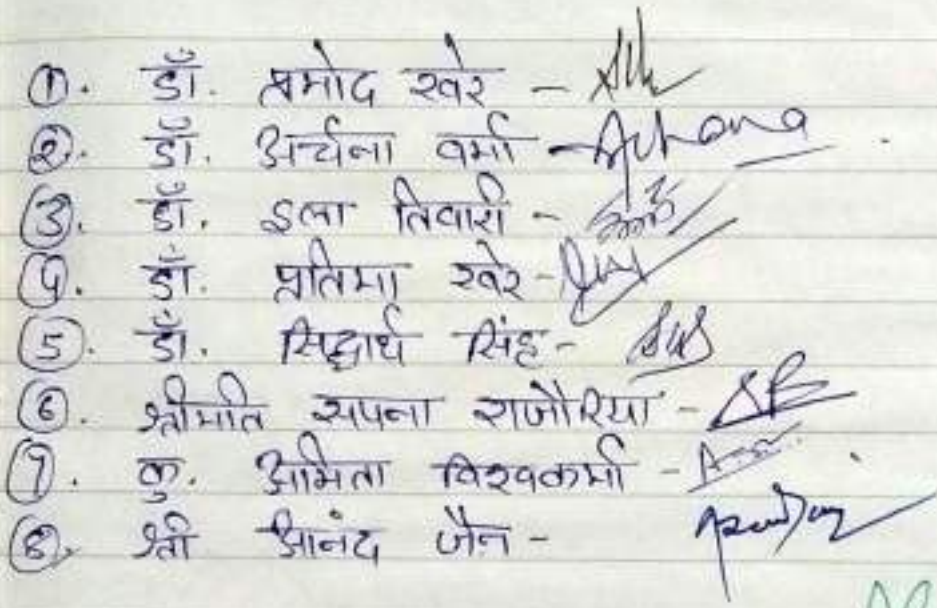 ①. डॉ. प्रमोद खरे -
②. डॉ. अर्चना वर्मा - Archana
③. डॉ. इला तिवारी -
④. डॉ. प्रतिमा खरे -
⑤. डॉ. सिद्धार्थ सिंह -
⑥. श्रीमति सपना राजौरिया -
⑦. कु. अमिता विश्वकर्मा -
⑧. श्री आनंद जैन -